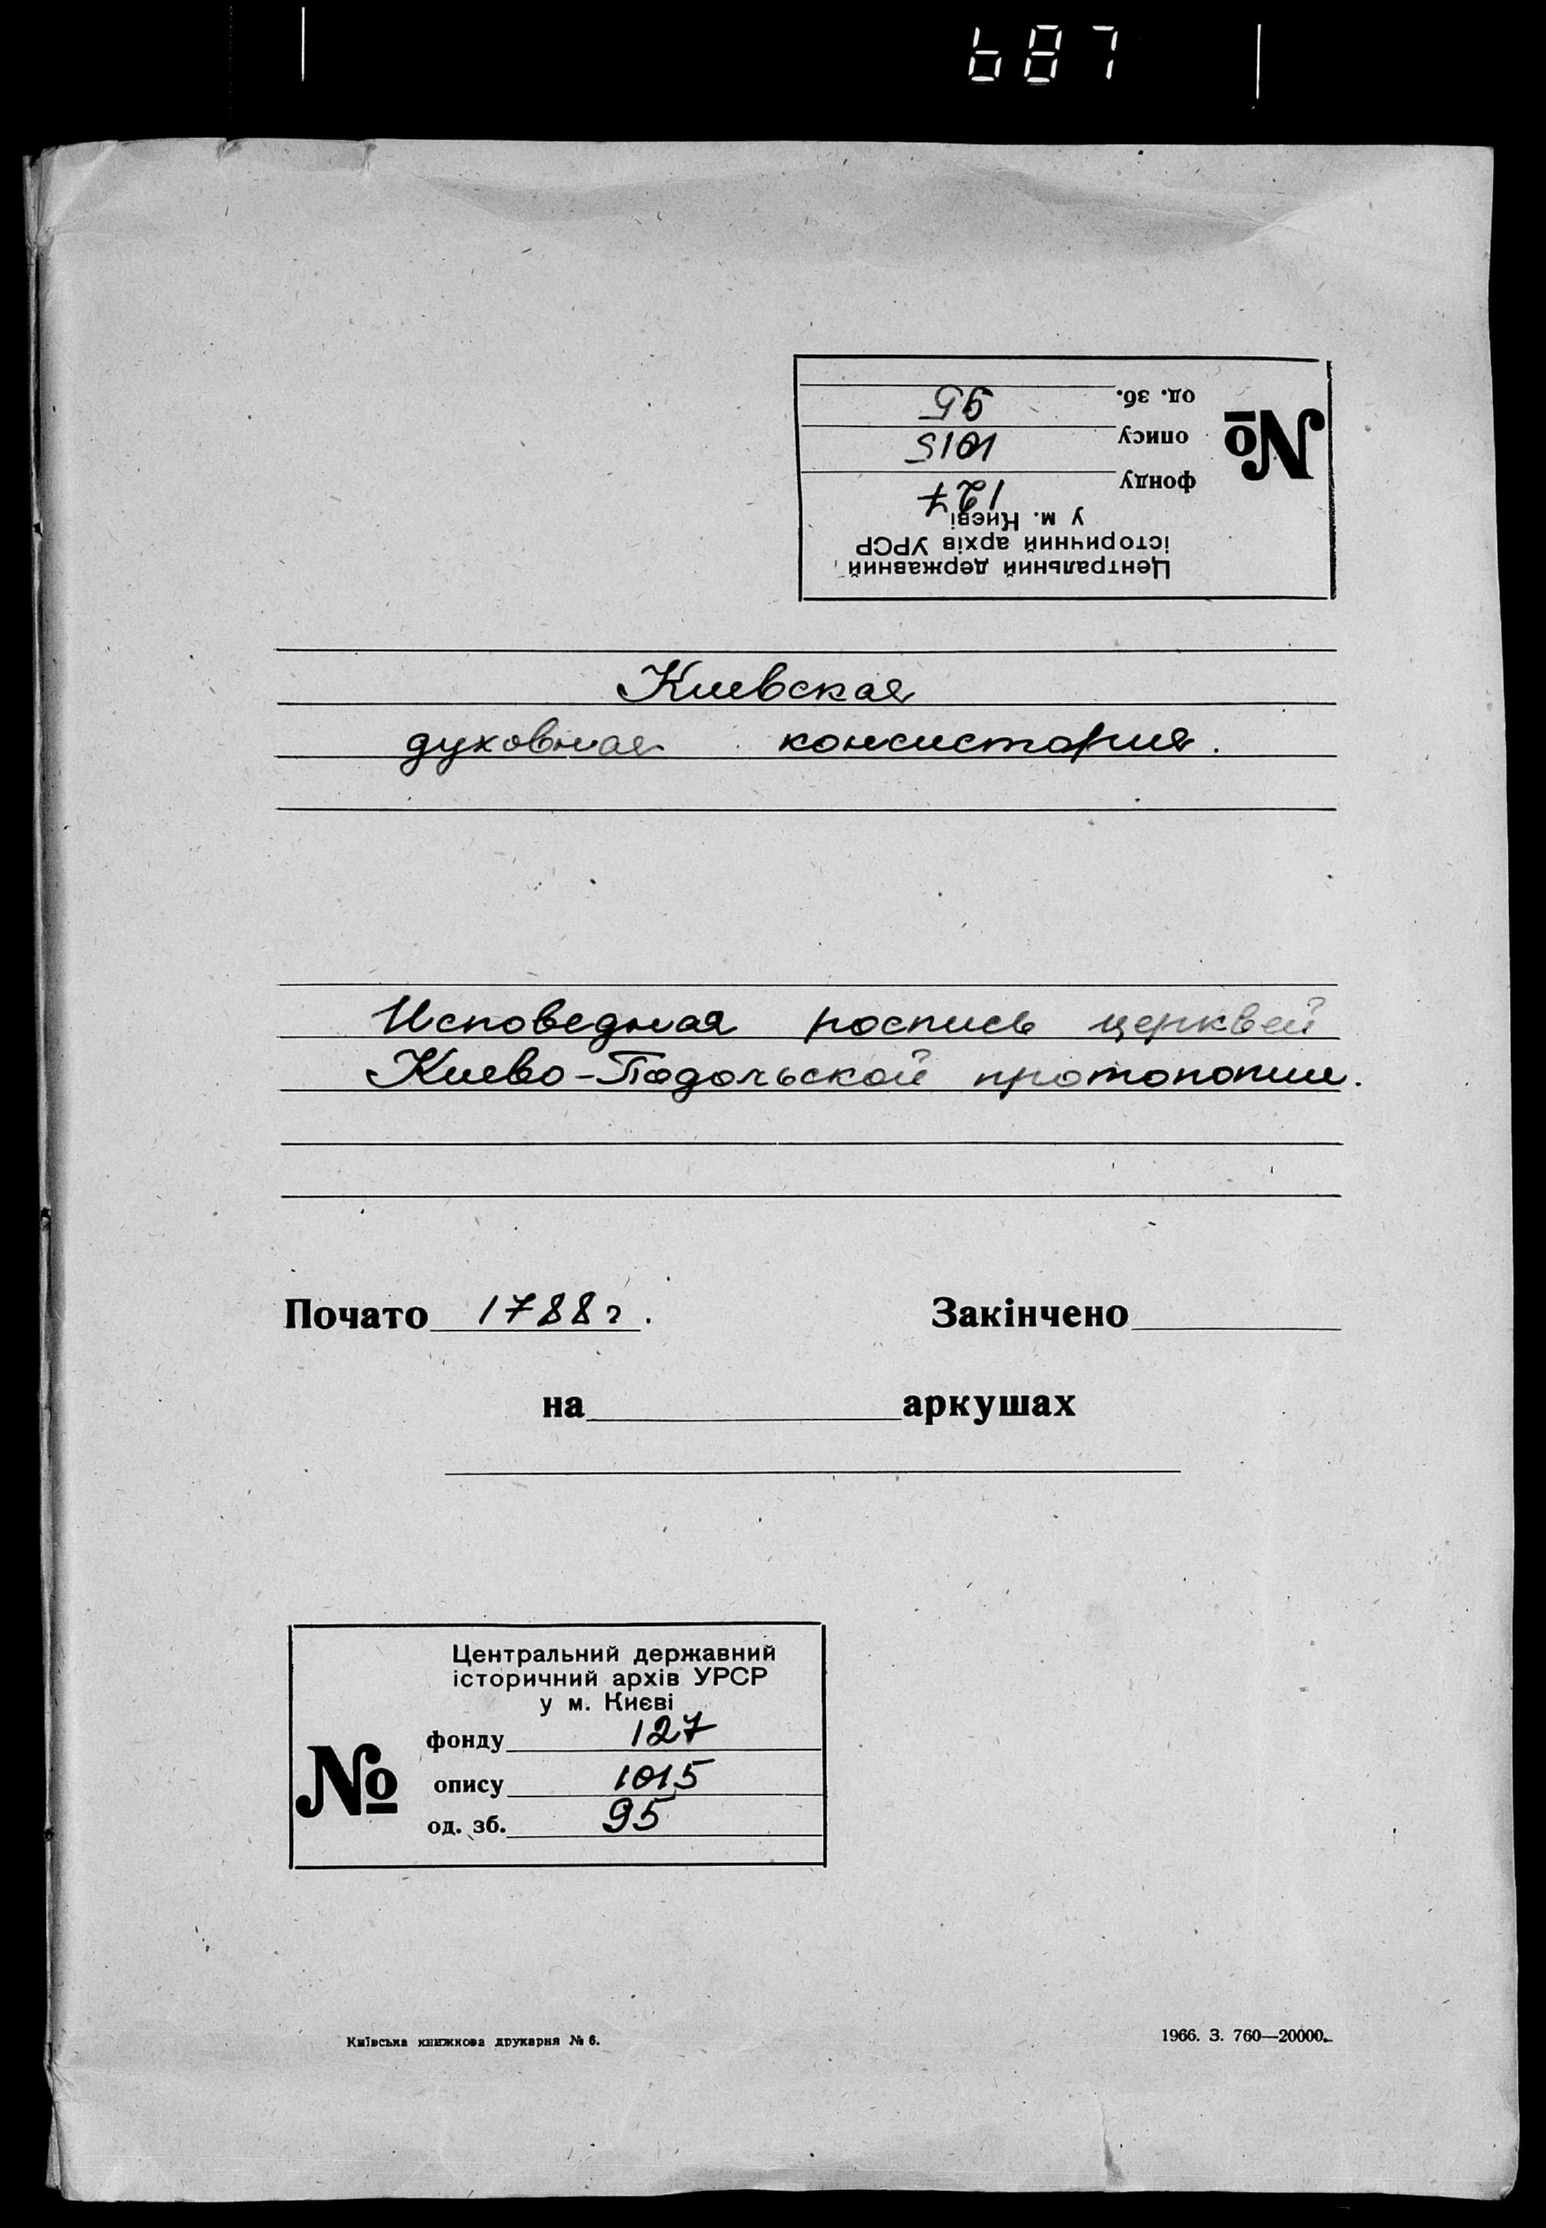 687
Центральний державний
історичний архів УРСР
у м. Києві
фонду 127
№
опису 1015
од. зб. 95
Киевская
духовная консистория.
Исповедная роспись церквей
Киево-Подольской протопопии.
Почато 1788 г. Закінчено
на аркушах
Центральний державний
історичний архів УРСР
у м. Києві
фонду 127
№
опису 1015
од. зб. 95
Київська книжкова друкарня № 6.
1966. З. 760—20000.